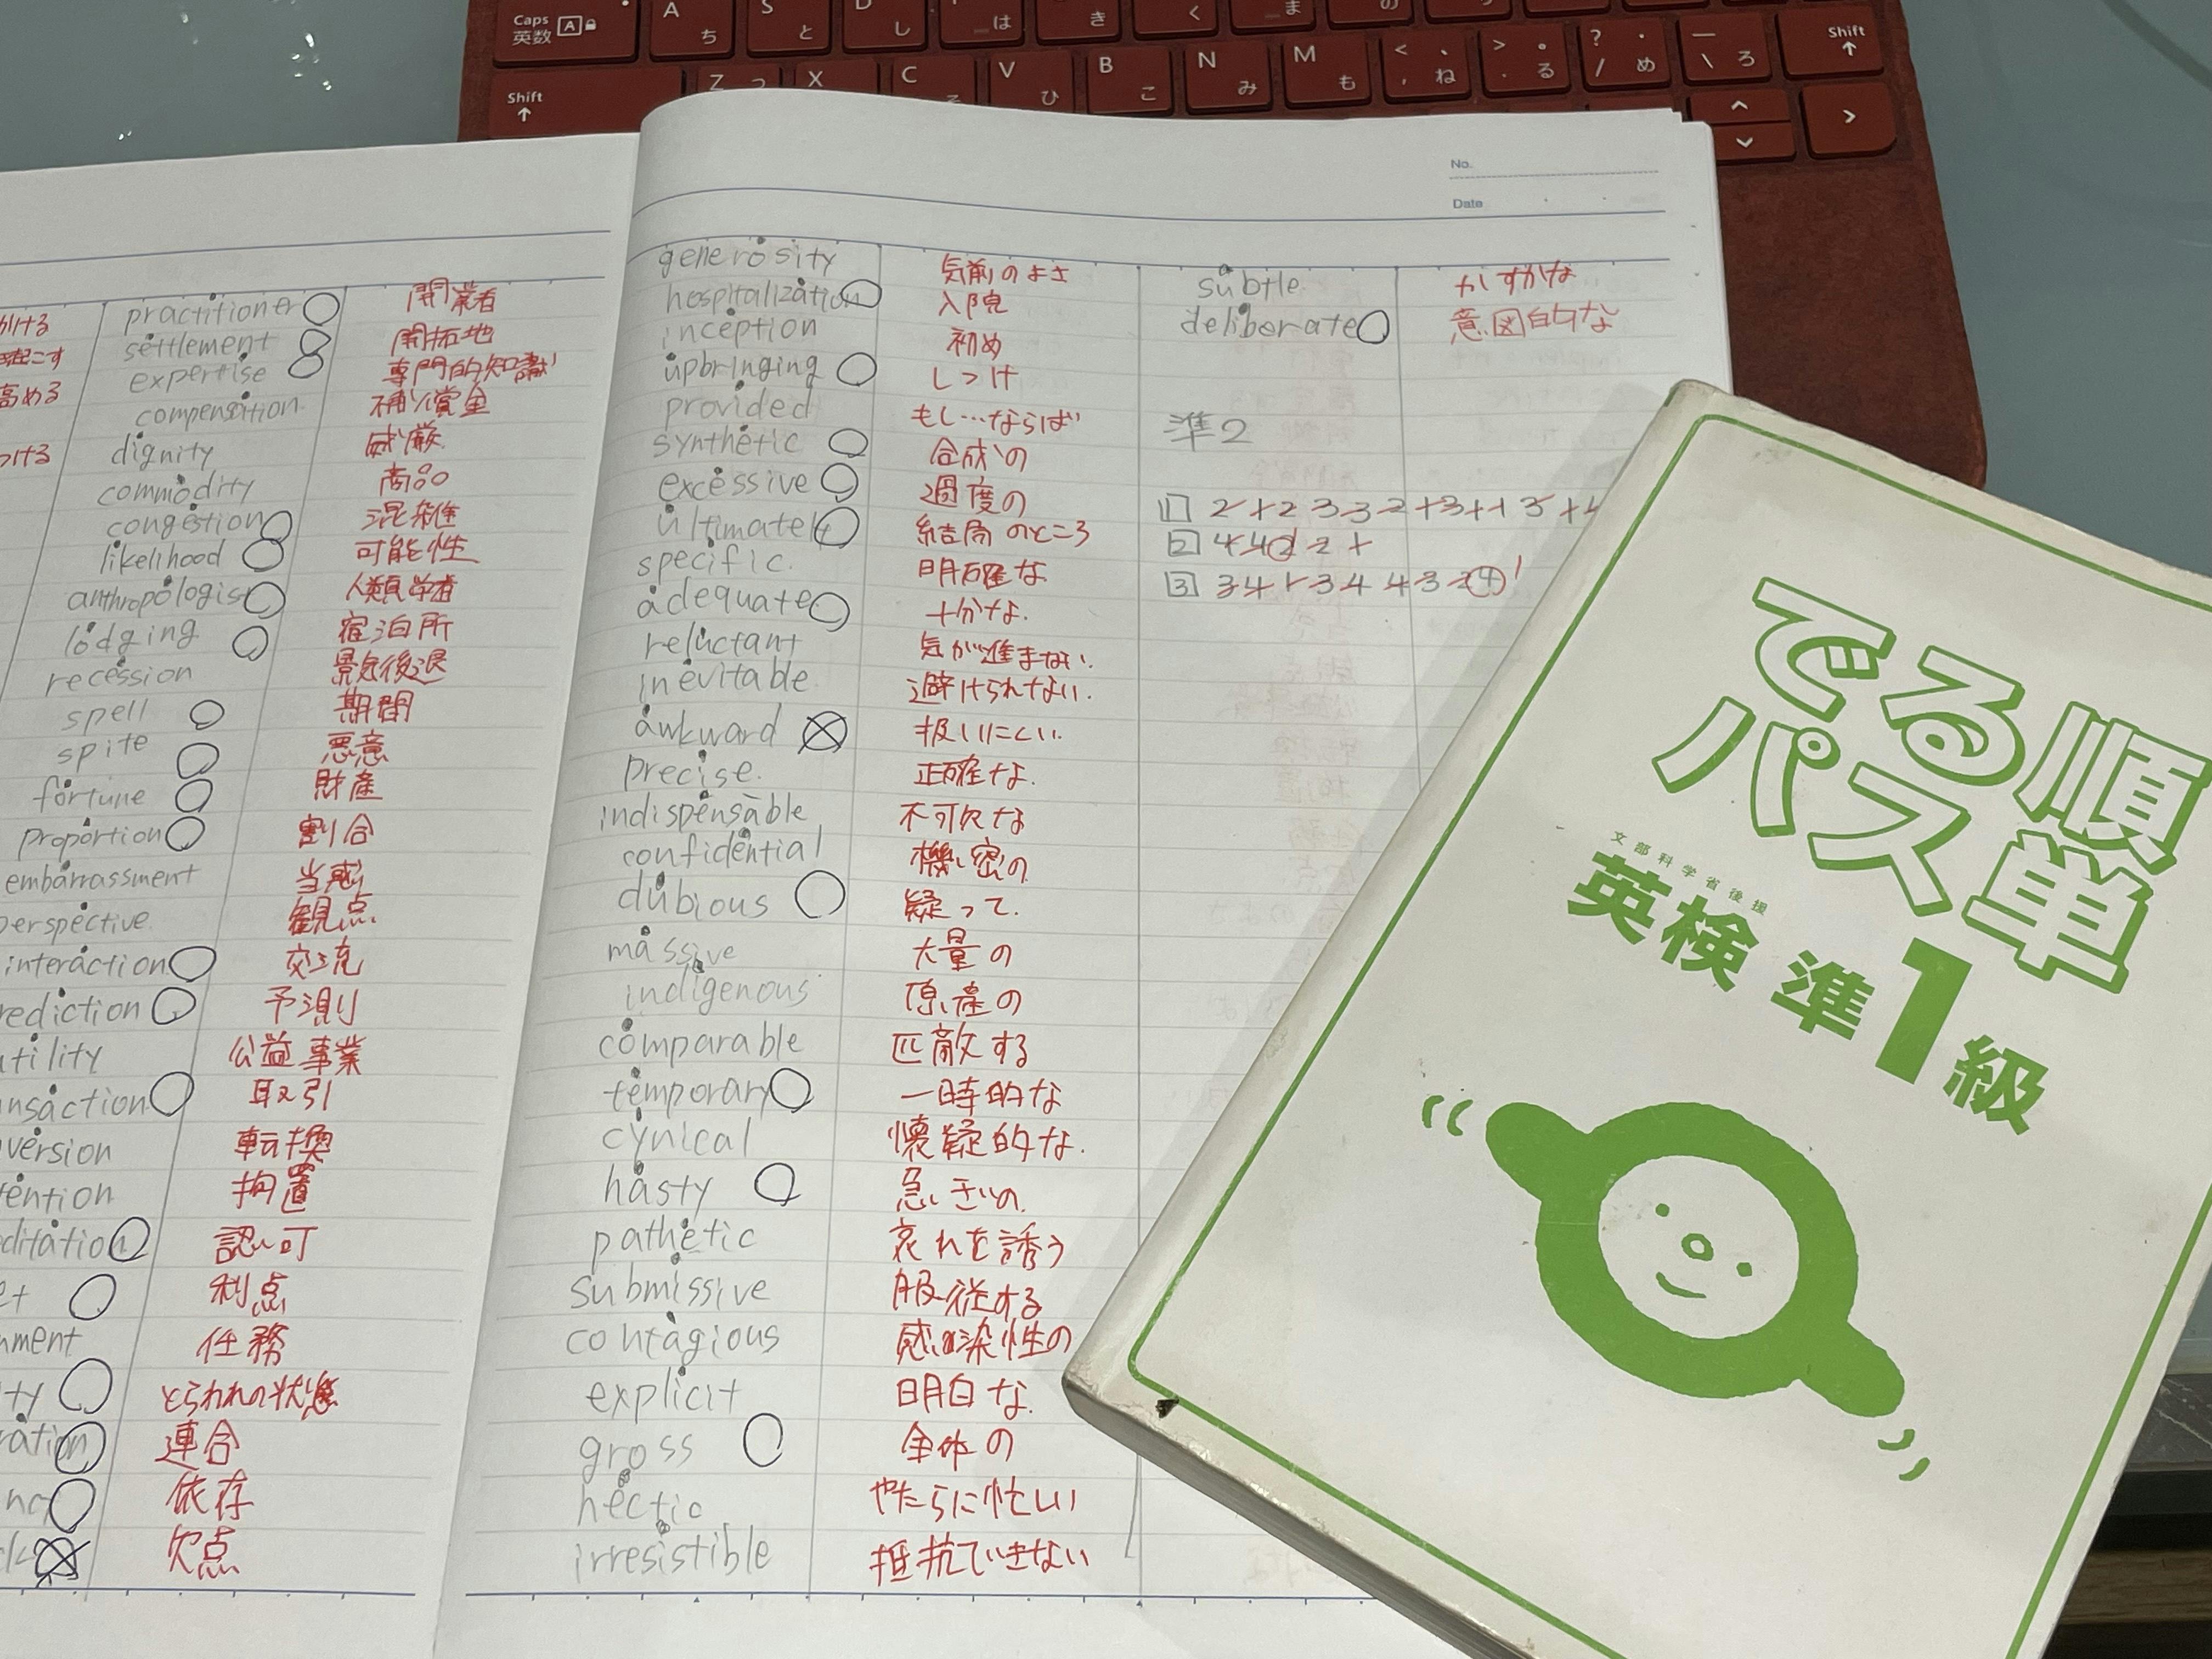 Caps 英数 A
A ち
S と
D し
は
き
く
ま
の
Shift
Z つ
X
C そ
V ひ
B こ
N み
M も
< 、 , ね
> 。 . る
? ・ / め
_ \ ろ
Shift
No.
Date
かける
起こす
高める
つける
practitioner 開業者
settlement 開拓地
expertise 専門的知識
compensation 補償金
dignity 威厳
commodity 商品
congestion 混雑性
likelihood 可能性
anthropologist 人類学者
lodging 宿泊所
recession 景気後退
spell 期間
spite 悪意
fortune 財産
proportion 割合
embarrassment 当惑
perspective 観点
interaction 交流
rediction 予測
utility 公益事業
nsaction 取引
version 転換
tention 拘置
editation 認可
et 利点
nment 任務
ty とらわれの状態
ration 連合
ncy 依存
ck 欠点
generosity 気前のよさ
hospitalization 入院
inception 初め
upbringing しつけ
provided もし…ならば
synthetic 合成の
excessive 過度の
ultimately 結局のところ
specific. 明確な
adequate 十分な.
reluctant 気が進まない.
inevitable 避けられない.
awkward 扱いにくい.
precise. 正確な.
indispensable 不可欠な
confidential 機密の
dubious 疑って.
massive 大量の
indigenous 原産の
comparable 匹敵する
temporary 一時的な
cynical 懐疑的な.
hasty 急ぎの.
pathetic 哀れを誘う
submissive 服従する
contagious 感染性の
explicit 明白な.
gross 全体の
hectic やたらに忙しい
irresistible 抵抗できない
subtle かすかな
deliberate 意図的な
準2
1
2
3
でる順
パス単
文部科学省後援
英検 準1級